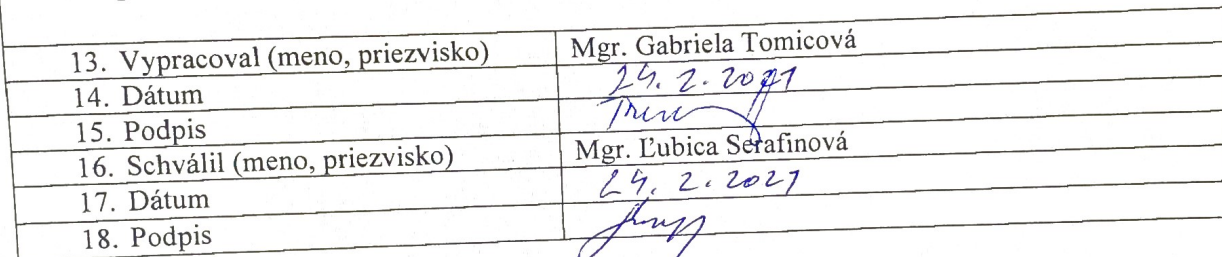 13. Vypracoval (meno, priezvisko) Mgr. Gabriela Tomicová
14. Dátum 24. 2. 2021
15. Podpis
16. Schválil (meno, priezvisko) Mgr. Ľubica Serafinová
17. Dátum 24. 2. 2021
18. Podpis